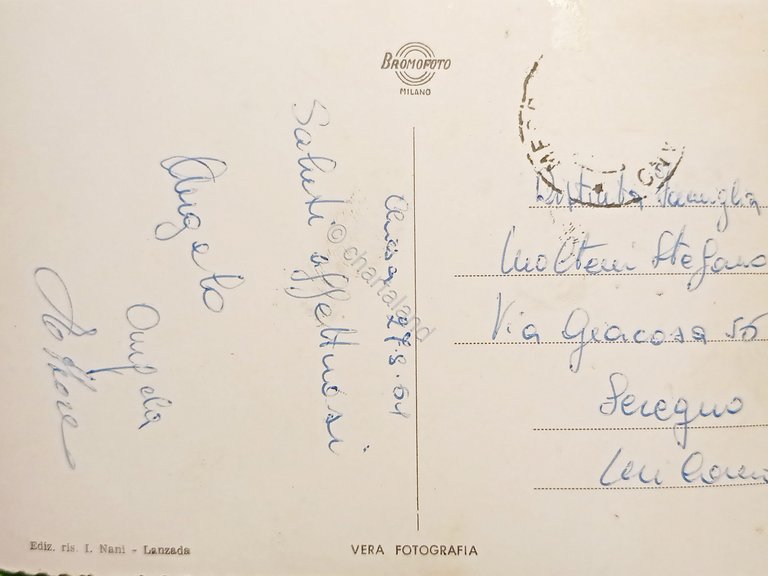 BROMOFOTO
MILANO
Chiesa 27.8.64
Saluti affettuosi
Angelo
Angela
© chartaland
Distinta Famiglia
Molteni Stefano
Via Giacosa 55
Seregno
Milano
Ediz. ris. I. Nani - Lanzada
VERA FOTOGRAFIA